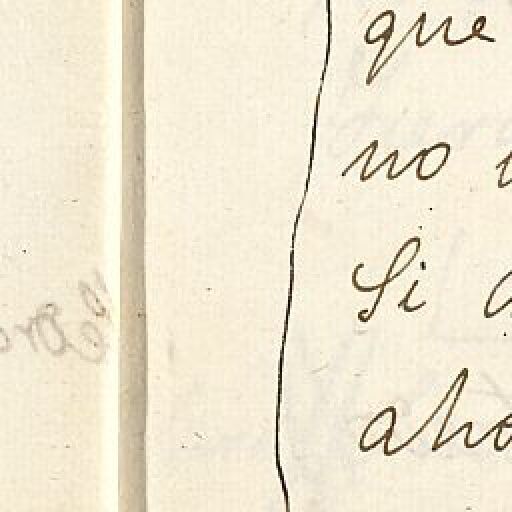 que
no
Si
aho